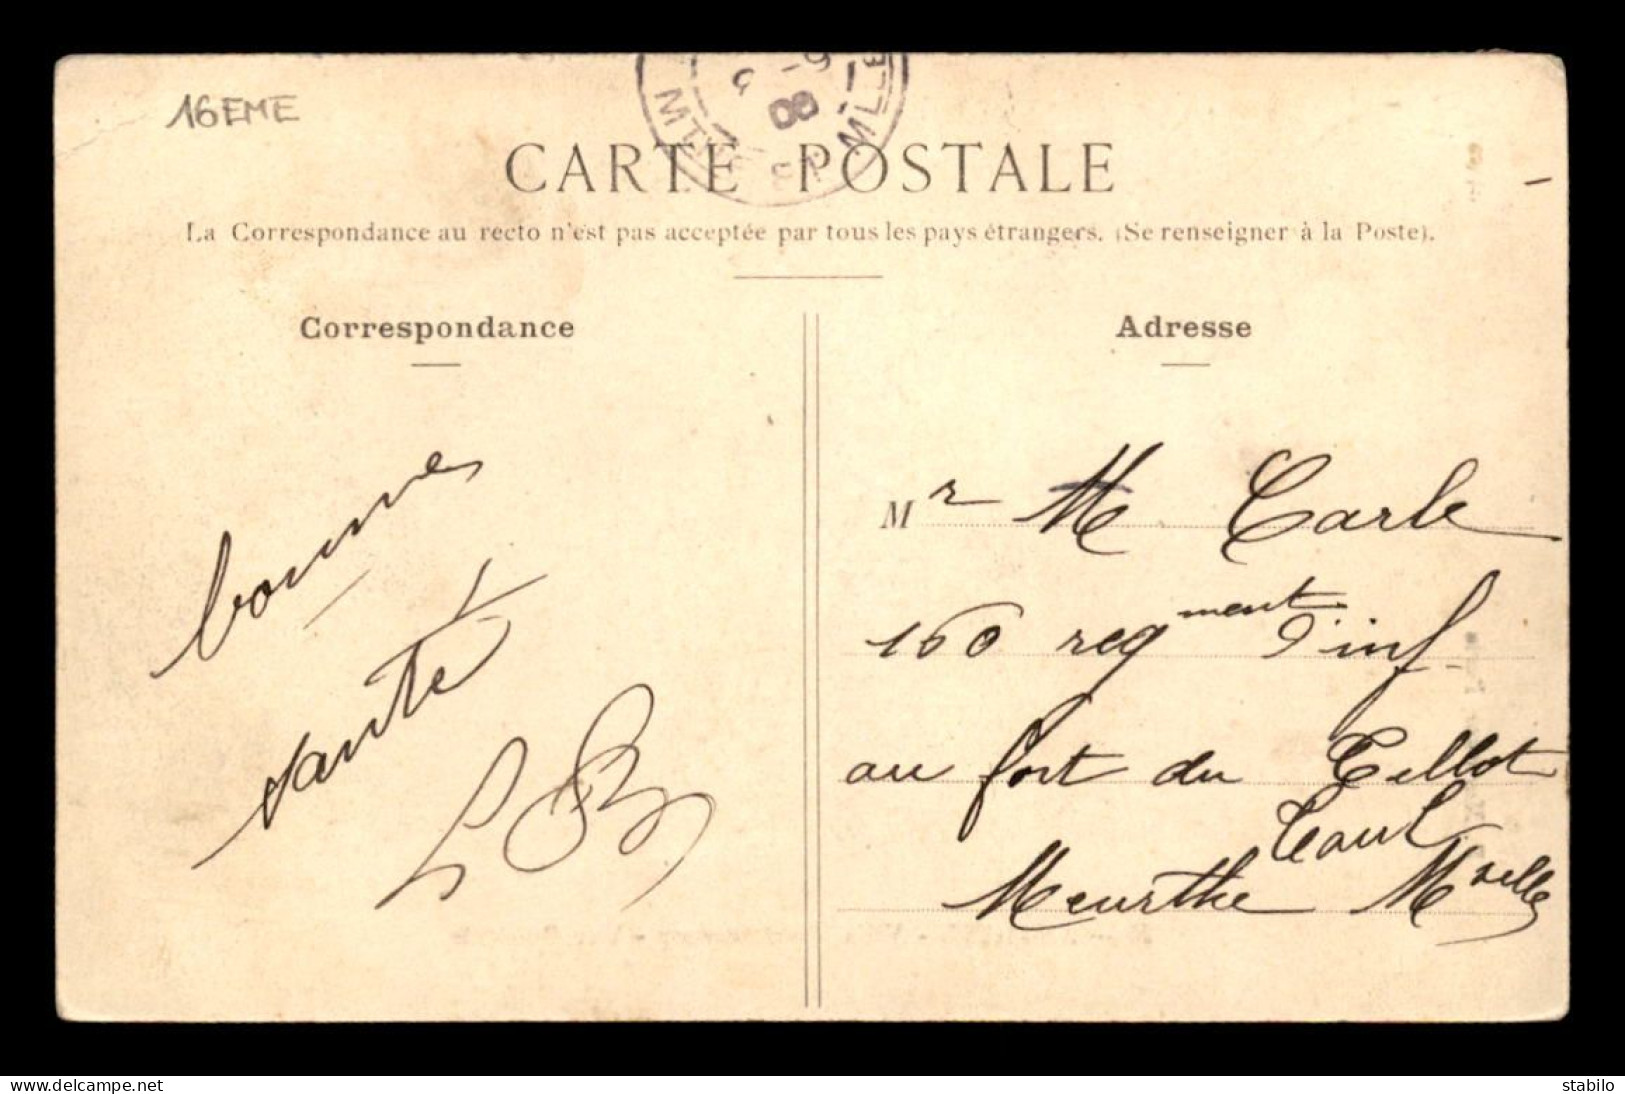 16EME
MTHE ET MLLE
08
CARTE POSTALE
La Correspondance au recto n'est pas acceptée par tous les pays étrangers. (Se renseigner à la Poste).
Correspondance
Adresse
bonne
santé
Mr M Carle
160 regment d'inf
au fort du Tillot
Toul
Meurthe Mselle
delcampe.net
stabilo